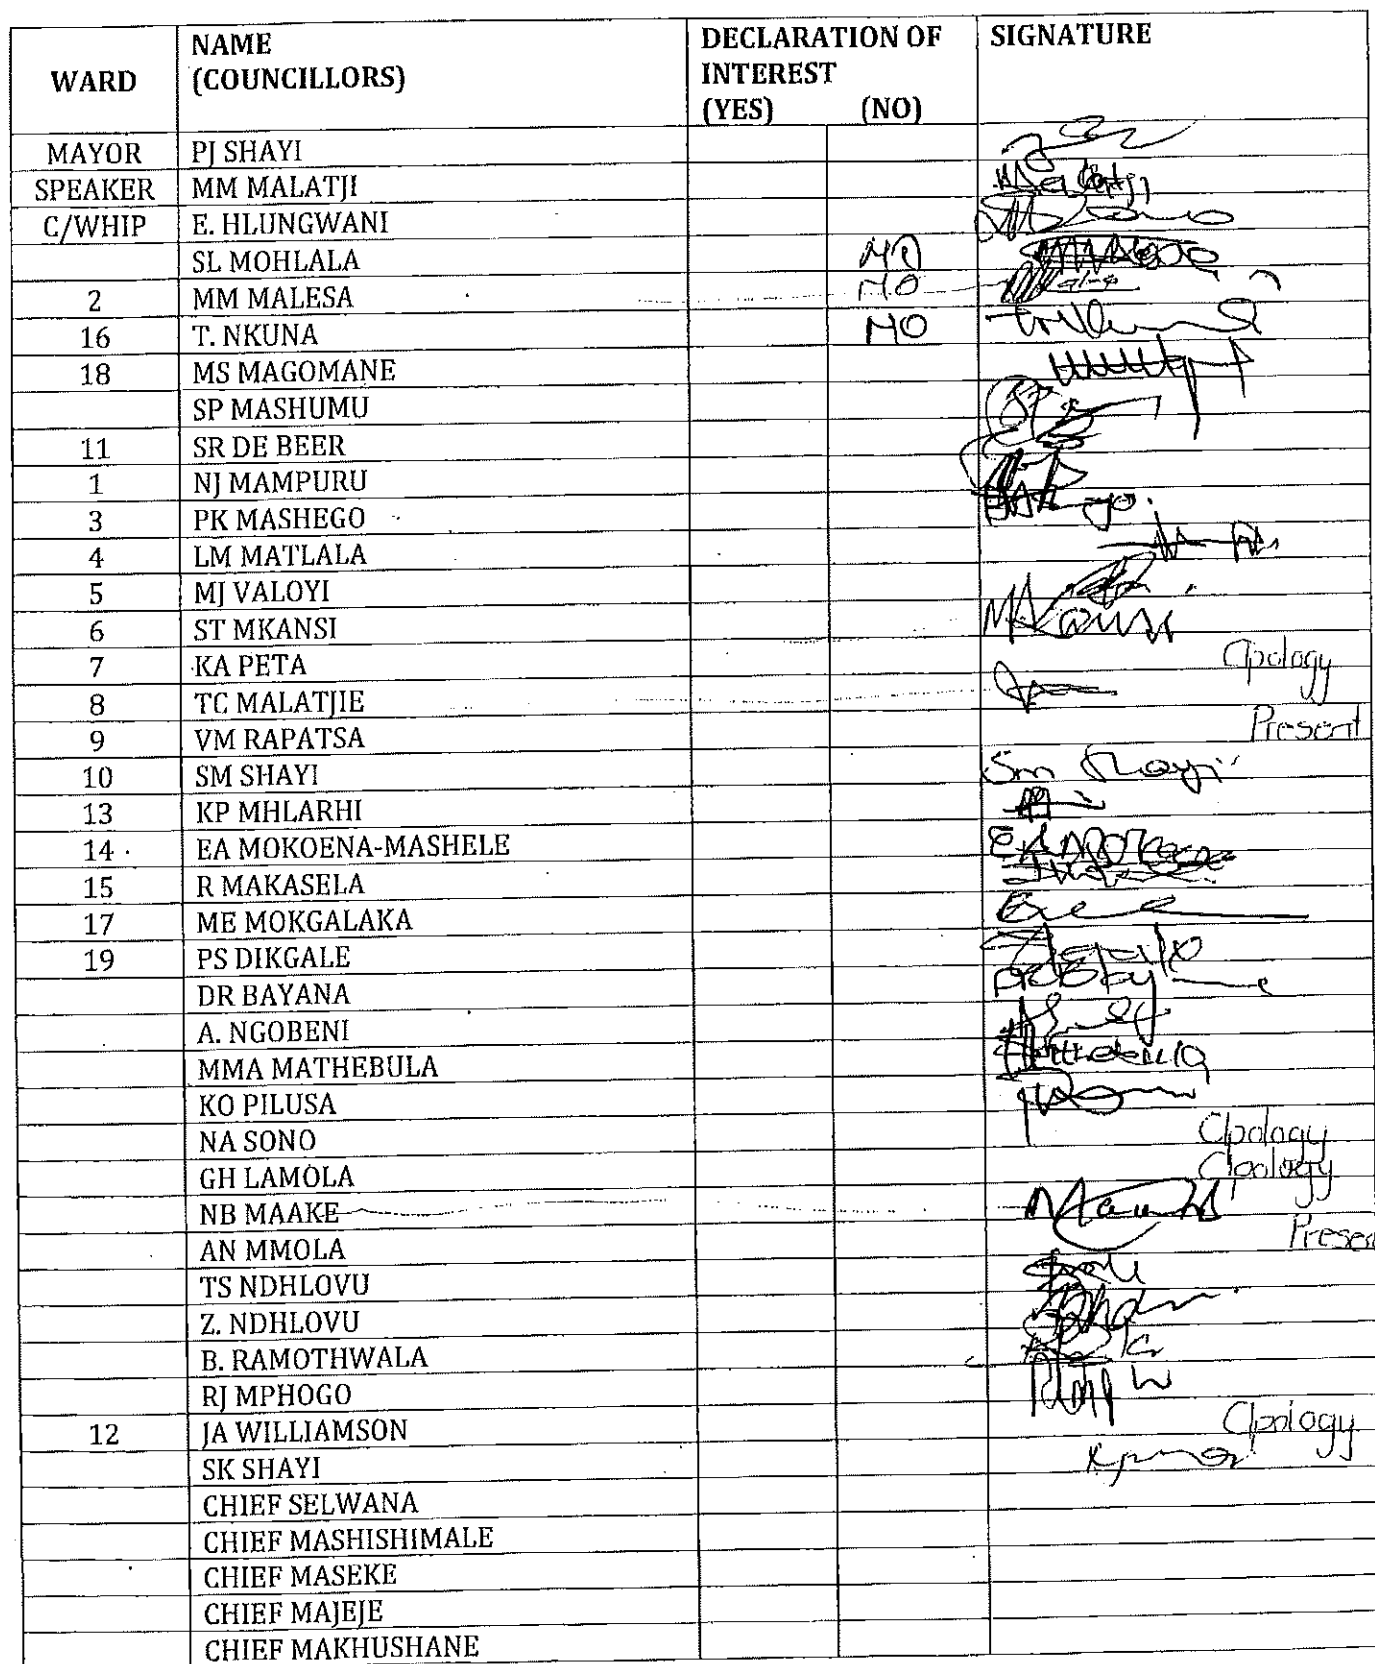 WARD NAME (COUNCILLORS) DECLARATION OF INTEREST (YES) (NO) SIGNATURE
MAYOR PJ SHAYI
SPEAKER MM MALATJI
C/WHIP E. HLUNGWANI
SL MOHLALA NO
2 MM MALESA NO
16 T. NKUNA NO
18 MS MAGOMANE
SP MASHUMU
11 SR DE BEER
1 NJ MAMPURU
3 PK MASHEGO
4 LM MATLALA
5 MJ VALOYI
6 ST MKANSI
7 KA PETA Apology
8 TC MALATJIE
9 VM RAPATSA Present
10 SM SHAYI Sm Shayi
13 KP MHLARHI
14 EA MOKOENA-MASHELE
15 R MAKASELA
17 ME MOKGALAKA
19 PS DIKGALE
DR BAYANA
A. NGOBENI
MMA MATHEBULA
KO PILUSA
NA SONO Apology
GH LAMOLA Apology
NB MAAKE
AN MMOLA Present
TS NDHLOVU
Z. NDHLOVU
B. RAMOTHWALA
RJ MPHOGO
12 JA WILLIAMSON Apology
SK SHAYI
CHIEF SELWANA
CHIEF MASHISHIMALE
CHIEF MASEKE
CHIEF MAJEJE
CHIEF MAKHUSHANE